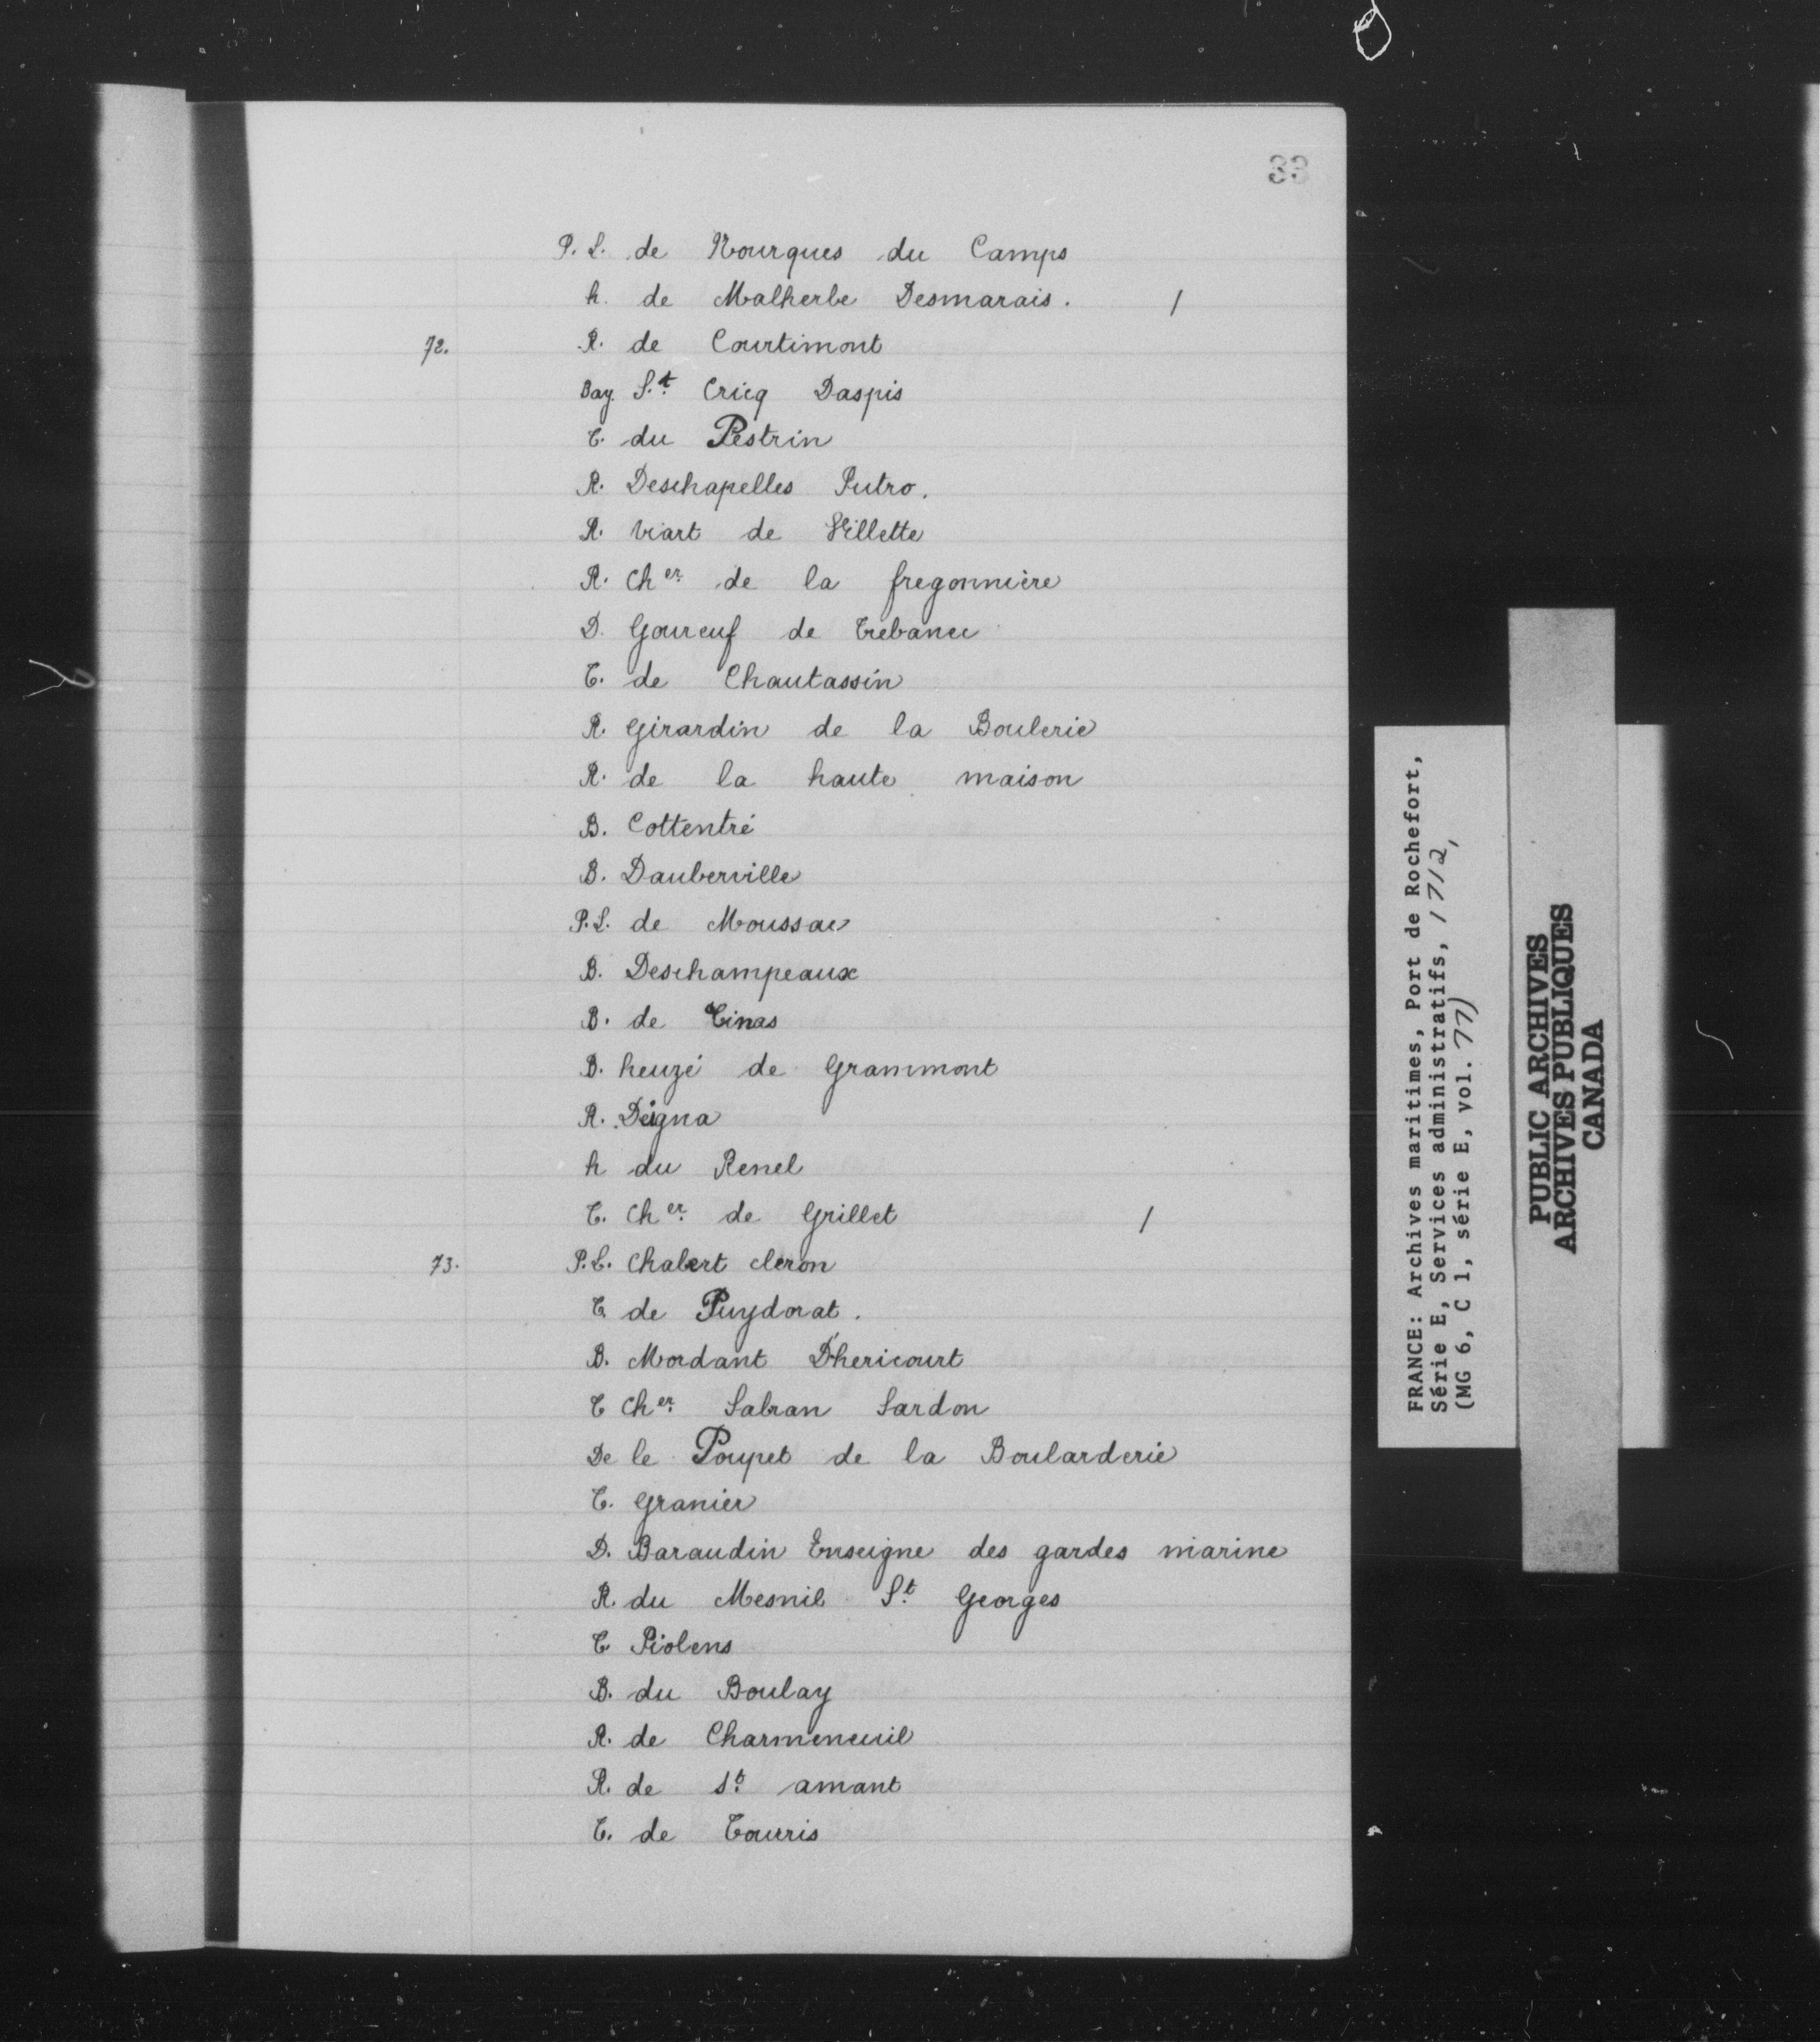 33
P. L. de Nourques du Camps
h. de Malherbe Desmarais. /
72. R. de Courtimont
Bay. S.t Cricq Daspis
T. du Pestrin
R. Deschapelles Putro.
R. Viart de Villette
R. Ch er. de la fregonnière
D. Goureuf de Trebanec
T. de Chautassin
R. Girardin de la Boulerie
R. de la haute maison
B. Cottentré
B. Dauberville
P.L. de Moussac
B. Deschampeaux
B. de Tinas
B. heuzé de Grammont
R. Deigna
h du Renel
T. Ch er. de Grillet /
73. P.L. Chabert cleron
T. de Puydorat.
B. Mordant D'hericourt
T Ch er. Sabran Sardon
De le Poupet de la Boularderie
T. Granier
D. Baraudin Enseigne des gardes marine
R. du Mesnil S.t Georges
T. Piolens
B. du Boulay
R. de Charmeneuil
R. de s.t amant
T. de Touris
FRANCE: Archives maritimes, Port de Rochefort,
Série E, Services administratifs, 1712,
(MG 6, C 1, série E, vol. 77)
PUBLIC ARCHIVES
ARCHIVES PUBLIQUES
CANADA